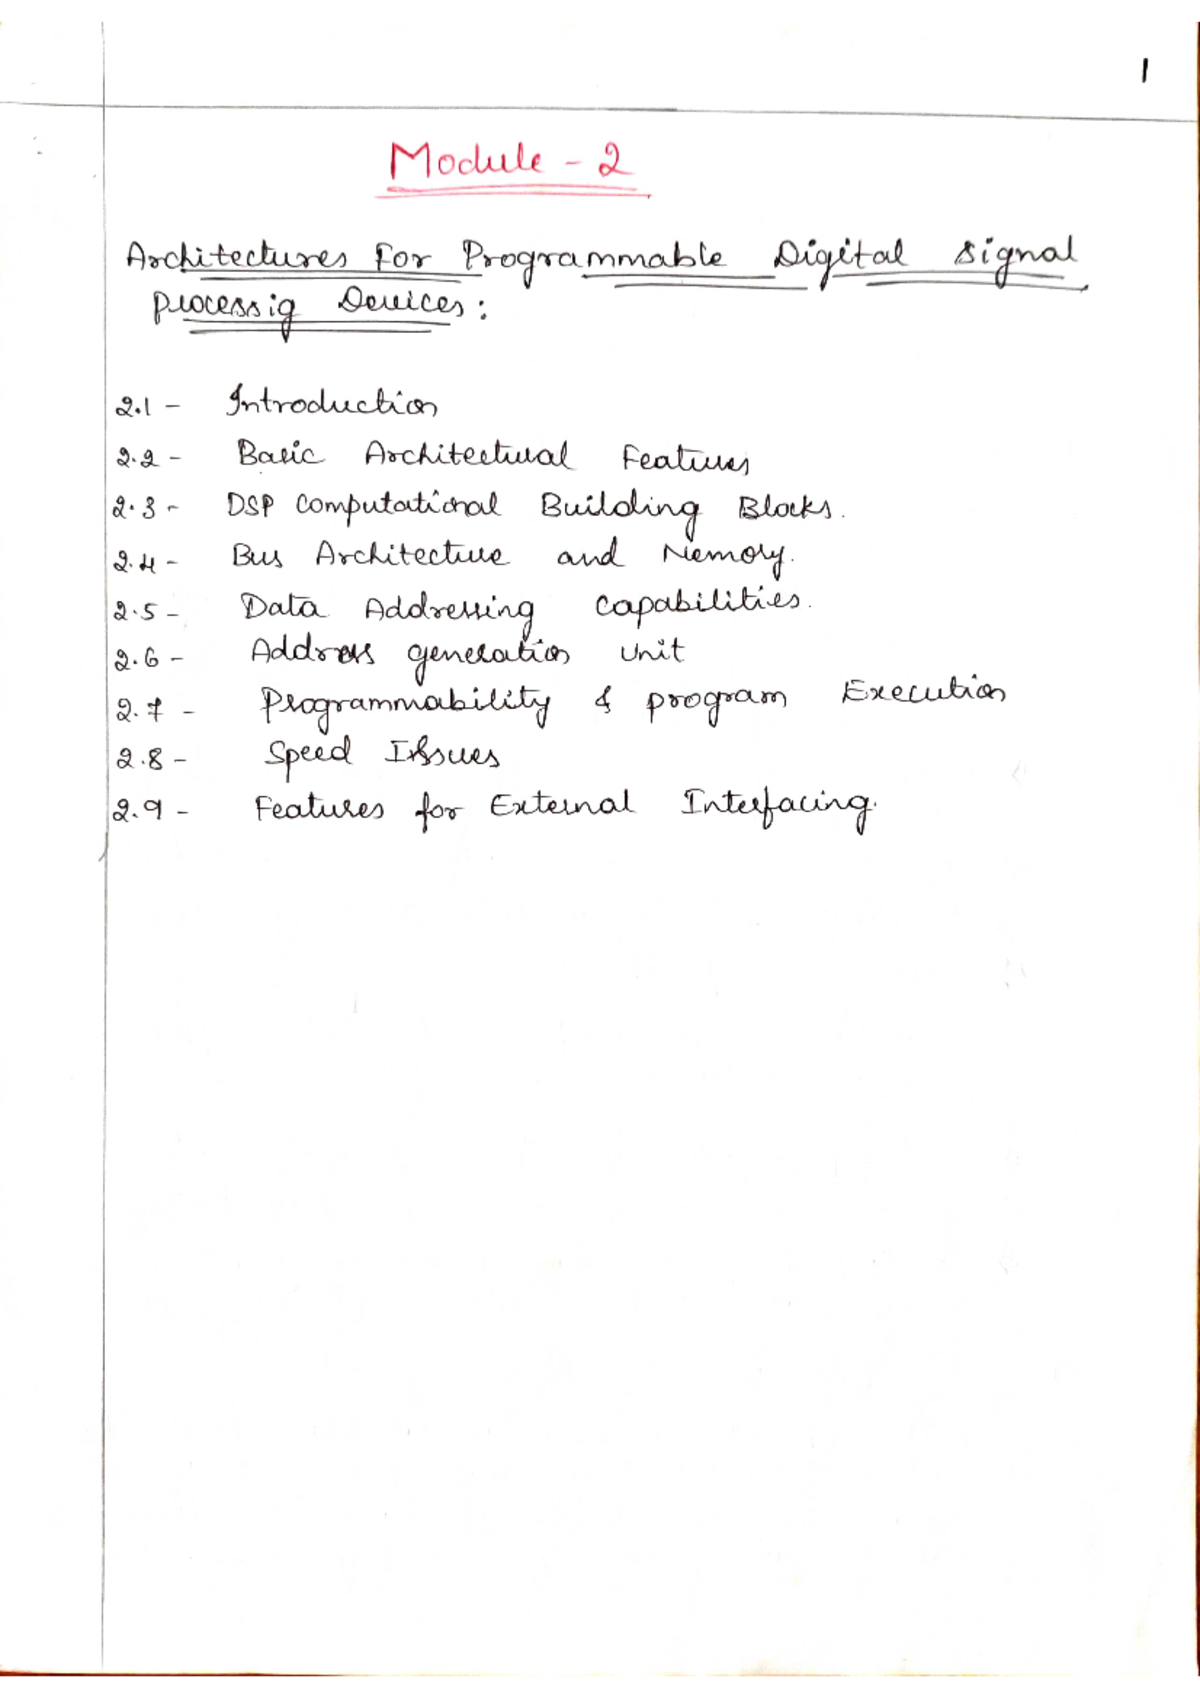 1
Module - 2
Architectures For Programmable Digital Signal
processig Devices :
2.1 - Introduction
2.2 - Basic Architectural Features
2.3 - DSP Computational Building Blocks.
2.4 - Bus Architecture and Memory.
2.5 - Data Addressing Capabilities.
2.6 - Address generation Unit
2.7 - Programmability & program Execution
2.8 - Speed Issues
2.9 - Features for External Interfacing.